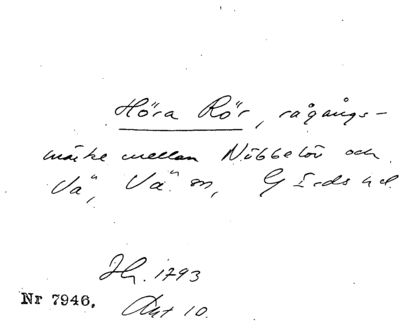 Höra Rör, rågångs-
märke mellan Nöbbelöv och
Vä, Vä sn, Gärds hd.
Hg. 1793
Nr 7946. Akt 10.